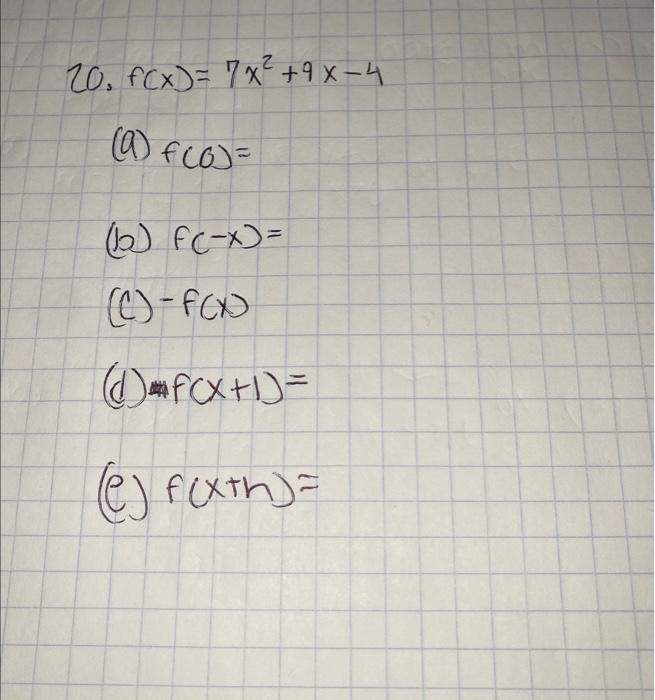 20. f(x) = 7x² + 9x - 4
(a) f(0) =
(b) f(-x) =
(c) - f(x)
(d) f(x+1) =
(e) f(x+h) =